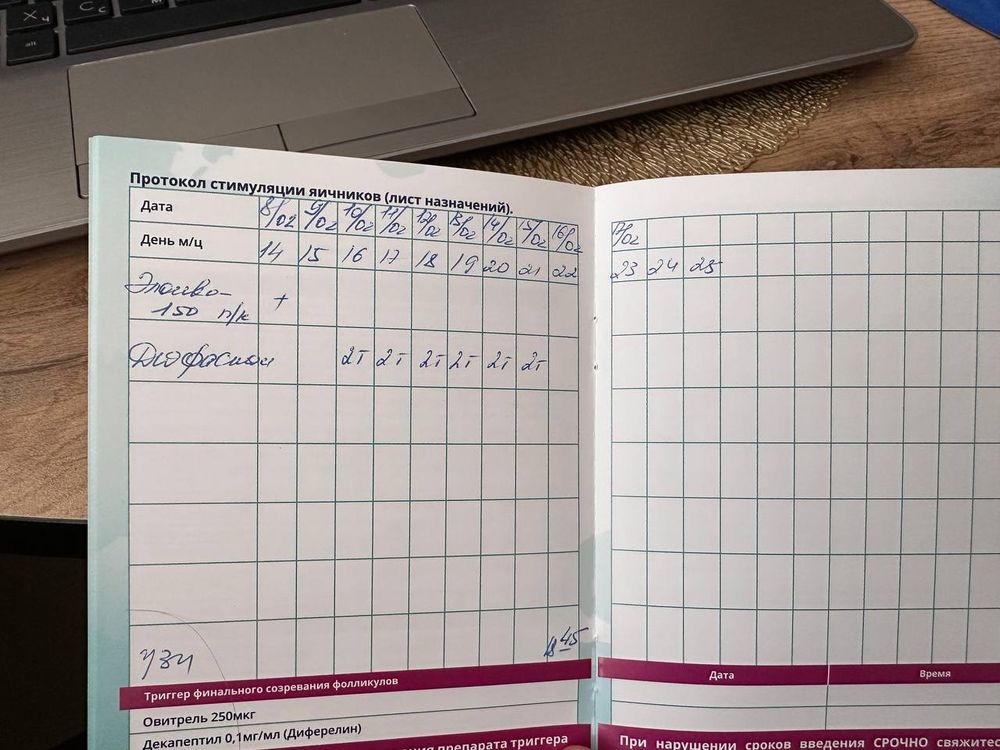 Х Ч
С с
alt
Протокол стимуляции яичников (лист назначений).
Дата 8/02 9/02 10/02 11/02 12/02 13/02 14/02 15/02 16/02 17/02
День м/ц 14 15 16 17 18 19 20 21 22 23 24 25
Элонва- +
150 п/к
Дюфастон 2т 2т 2т 2т 2т 2т
УЗИ 18 45
Триггер финального созревания фолликулов Дата Время
Овитрель 250мкг
Декапептил 0,1мг/мл (Диферелин)
препарата триггера
При нарушении сроков введения СРОЧНО